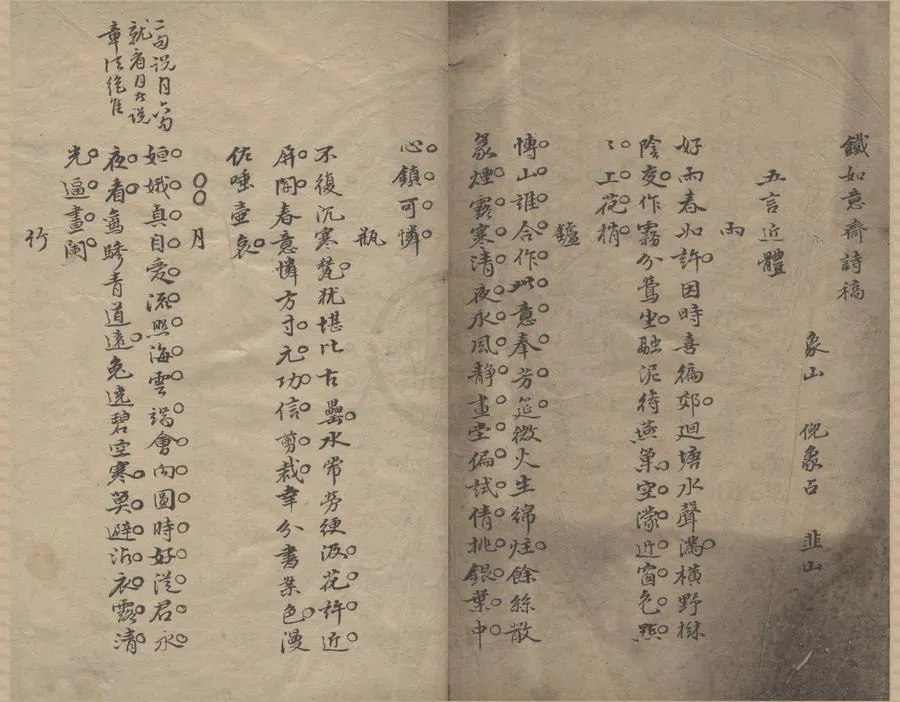 鐵如意齋詩稿
象山 倪象占 韭山
五言近體
雨
好雨春如許因時喜徧郊廻塘水聲滿橫野樹
陰交作霧分鶯坐融泥待燕巢空濛近窗色點
〻上花梢
鑪
博山誰合作此意奉芳筵微火生綿炷餘絲散
篆煙露寒清夜水風靜畫堂偏試倩挑銀葉中
心鎮可憐
瓶
不復沉寒甃猶堪比古罍水常勞綆汲花許近
屏開春意憐方寸元功信剪裁幸分書案色漫
佐唾壺哀
月
姮娥真自愛流照海雲端會向圓時好從君永
夜看鸞驂青道遠兔遶碧空寒莫避沾衣露清
光逼畫闌
二句說月六句
就看月者說
章法絕佳
竹